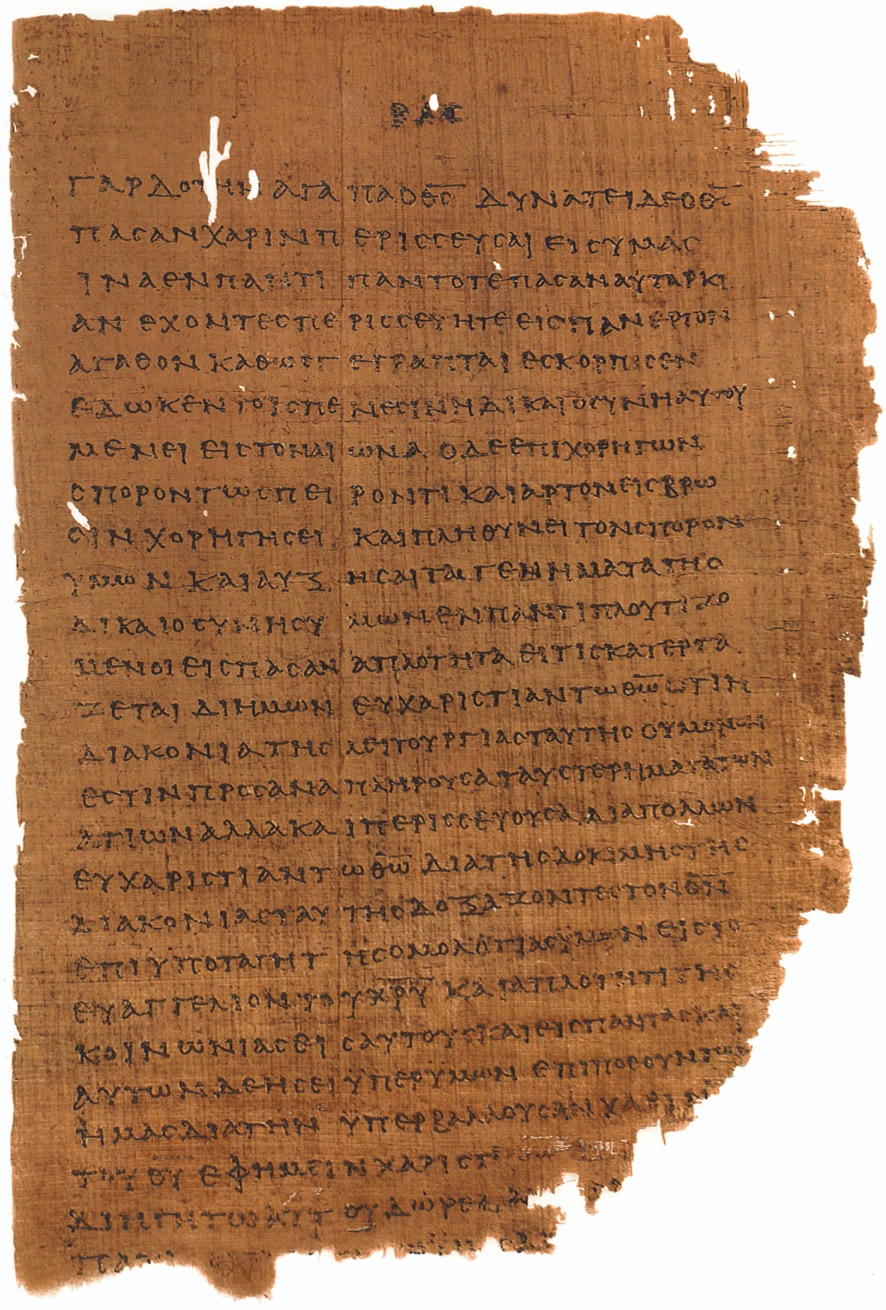 ΓΑΡΔΟΤΗΝΑΓΑΠΑΟΘ̅Ϲ̅ ΔΥΝΑΤΕΙΔΕΟΘ̅Ϲ̅
ΠΑϹΑΝΧΑΡΙΝΠΕΡΙϹϹΕΥϹΑΙΕΙϹΥΜΑϹ
ΙΝΑΕΝΠΑΝΤΙΠΑΝΤΟΤΕΠΑϹΑΝΑΥΤΑΡΚΙ
ΑΝΕΧΟΝΤΕϹΠΕΡΙϹϹΕΥΗΤΕΕΙϹΠΑΝΕΡΓΟΝ
ΑΓΑΘΟΝΚΑΘΩϹΓΕΓΡΑΠΤΑΙΕϹΚΟΡΠΙϹΕΝ
ΕΔΩΚΕΝΤΟΙϹΠΕΝΕϹΙΝΗΔΙΚΑΙΟϹΥΝΗΑΥΤΟΥ
ΜΕΝΕΙΕΙϹΤΟΝΑΙΩΝΑΟΔΕΕΠΙΧΟΡΗΓΩΝ
ϹΠΟΡΟΝΤΩϹΠΕΙΡΟΝΤΙΚΑΙΑΡΤΟΝΕΙϹΒΡΩ
ϹΙΝΧΟΡΗΓΗϹΕΙΚΑΙΠΛΗΘΥΝΕΙΤΟΝϹΠΟΡΟΝ
ΥΜΩΝΚΑΙΑΥΞΗϹΑΙΤΑΓΕΝΗΜΑΤΑΤΗϹ
ΔΙΚΑΙΟϹΥΝΗϹΥΜΩΝΕΝΠΑΝΤΙΠΛΟΥΤΙΖΟ
ΜΕΝΟΙΕΙϹΠΑϹΑΝΑΠΛΟΤΗΤΑΕΙΤΙϹΚΑΤΕΡΓΑ
ΖΕΤΑΙΔΙΗΜΩΝΕΥΧΑΡΙϹΤΙΑΝΤΩΘ̅Ω̅ΟΤΙΗ
ΔΙΑΚΟΝΙΑΤΗϹΛΕΙΤΟΥΡΓΙΑϹΤΑΥΤΗϹΟΥΜΟΝΟΝ
ΕϹΤΙΝΠΡΟϹΑΝΑΠΛΗΡΟΥϹΑΤΑΥϹΤΕΡΗΜΑΤΑΤΩΝ
ΑΓΙΩΝΑΛΛΑΚΑΙΠΕΡΙϹϹΕΥΟΥϹΑΔΙΑΠΟΛΛΩΝ
ΕΥΧΑΡΙϹΤΙΑΝΤΩΘ̅Ω̅ΔΙΑΤΗϹΔΟΚΙΜΗϹΤΗϹ
ΔΙΑΚΟΝΙΑϹΤΑΥΤΗϹΔΟΞΑΖΟΝΤΕϹΤΟΝΘ̅Ν̅
ΕΠΙΥΠΟΤΑΓΗΤΗϹΟΜΟΛΟΓΙΑϹΥΜΩΝΕΙϹΤΟ
ΕΥΑΓΓΕΛΙΟΝΤΟΥΧ̅Ρ̅Υ̅ΚΑΙΑΠΛΟΤΗΤΙΤΗϹ
ΚΟΙΝΩΝΙΑϹΕΙϹΑΥΤΟΥϹΚΑΙΕΙϹΠΑΝΤΑϹΚΑΙ
ΑΥΤΩΝΔΕΗϹΕΙΫΠΕΡΥΜΩΝΕΠΙΠΟΘΟΥΝΤΩΝ
ΗΜΑϹΔΙΑΤΗΝΥΠΕΡΒΑΛΛΟΥϹΑΝΧΑΡΙΝ
ΤΟΥΘ̅Υ̅ΕΦΗΜΕΙΝΧΑΡΙϹ
ΑΥΤΟΥΔΩΡΕΑ